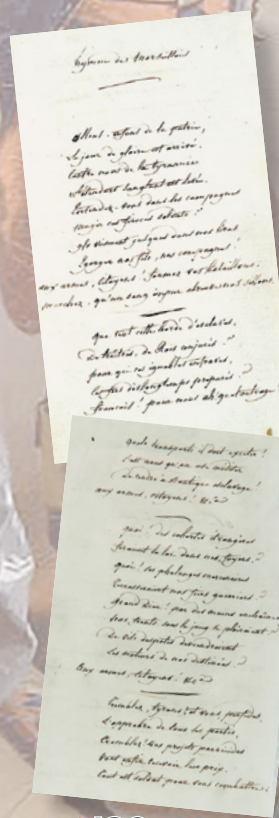 hymne des marseillois
allons enfans de la patrie,
le jour de gloire est arrivé.
contre nous de la tyrannie
l'étendart sanglant est levé.
Entendez-vous dans les campagnes
mugir ces féroces soldats ?
ils viennent jusques dans vos bras
égorger vos fils, vos compagnes !
aux armes, citoyens ! formez vos bataillons.
marchez, qu'un sang impur abreuve nos sillons.
que veut cette horde d'esclaves,
De traîtres, de Rois conjurés ?
pour qui ces ignobles entraves,
Ces fers dès longtemps préparés ?
français ! pour nous ah quel outrage
quels transports il doit exciter !
C'est nous qu'on ose méditer
De rendre à l'antique esclavage !
aux armes, citoyens ! &c.
quoi ! des cohortes étrangères
feraient la loi dans nos foyers ?
quoi ! ces phalanges mercenaires
terrasseraient nos fiers guerriers ?
grand dieu ! par des mains enchaînées
nos fronts sous le joug se ploieraient ?
De vils despotes deviendraient
les maîtres de nos destinées ?
Aux armes, citoyens ! &c.
tremblez, tyrans, et vous perfides,
L'opprobre de tous les partis,
tremblez ! vos projets parricides
vont enfin recevoir leur prix.
tout est soldat pour vous combattre